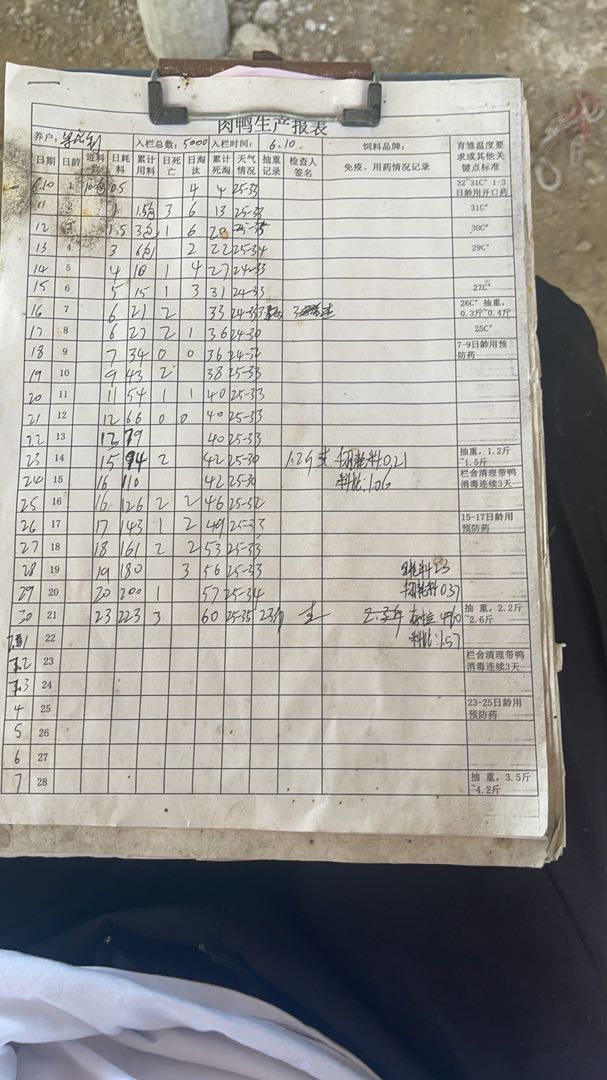 肉鸭生产报表
养户: 入栏总数: 5000 入栏时间: 6.10. 饲料品牌:
日期 日龄 进料包数 日耗料 累计用料 日死亡 日淘汰 累计死淘 天气情况 抽重记录 检查人签名 免疫、用药情况记录 育雏温度要求或其他关键点标准
6.10 1 0.5 4 4 25-33 32~31C° 1-3日龄用开口药
11 2 1 1.5包 3 6 13 25-33 31C°
12 3 1.5 3包 1 6 20 25-35 30C°
13 4 3 6包 2 22 25-34 29C°
14 5 4 10 1 4 27 24-33
15 6 5 15 1 3 31 24-33 27C°
16 7 6 21 2 33 24-33 26C° 抽重,0.3斤~0.4斤
17 8 6 27 2 1 36 24-30 25C°
18 9 7 34 0 0 36 24-32 7-9日龄用预防药
19 10 9 43 2 38 25-33
20 11 11 54 1 1 40 25-33
21 12 12 66 0 0 40 25-33
22 13 13 79 40 25-33
23 14 15 94 2 42 25-30 1.2斤 料0.21 抽重,1.2斤~1.5斤
24 15 16 110 42 25-30 料比:1.06 栏舍清理带鸭消毒连续3天
25 16 16 126 2 2 46 25-32
26 17 17 143 1 2 49 25-33 15-17日龄用预防药
27 18 18 161 2 2 53 25-33
28 19 19 180 3 56 25-33 耗料23
29 20 20 200 1 57 25-34 耗料0.37
30 21 23 223 3 60 25-35 2.3斤 2.3斤 存栏 4940 抽重,2.2斤~2.6斤
料比:1.57
7.1 22
7.2 23 栏舍清理带鸭消毒连续3天
7.3 24
4 25 23-25日龄用预防药
5 26
6 27
7 28 抽重,3.5斤~4.2斤